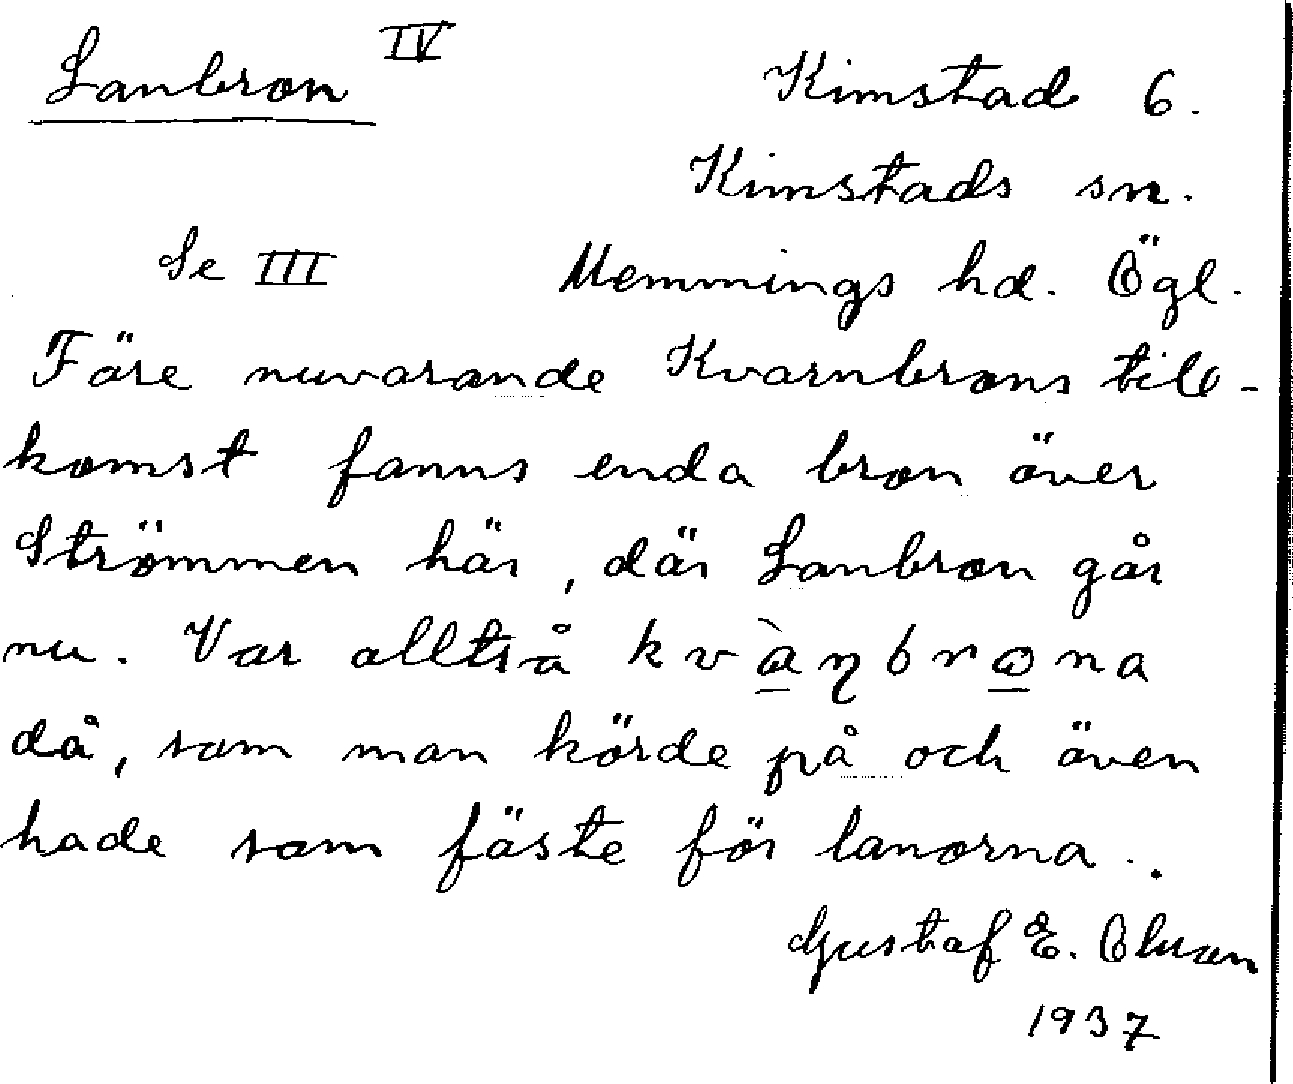 Lanbron IV
Kimstad 6.
Kimstads sn.
Se III Memmings hd. Ögl.
Före nuvarande Kvarnbrons till-
komst fanns enda bron över
Strömmen här, där Lanbron går
nu. Var alltså kvàɳbrona
då, som man körde på och även
hade som fäste för lanorna.
Gustaf E. Olsson
1937